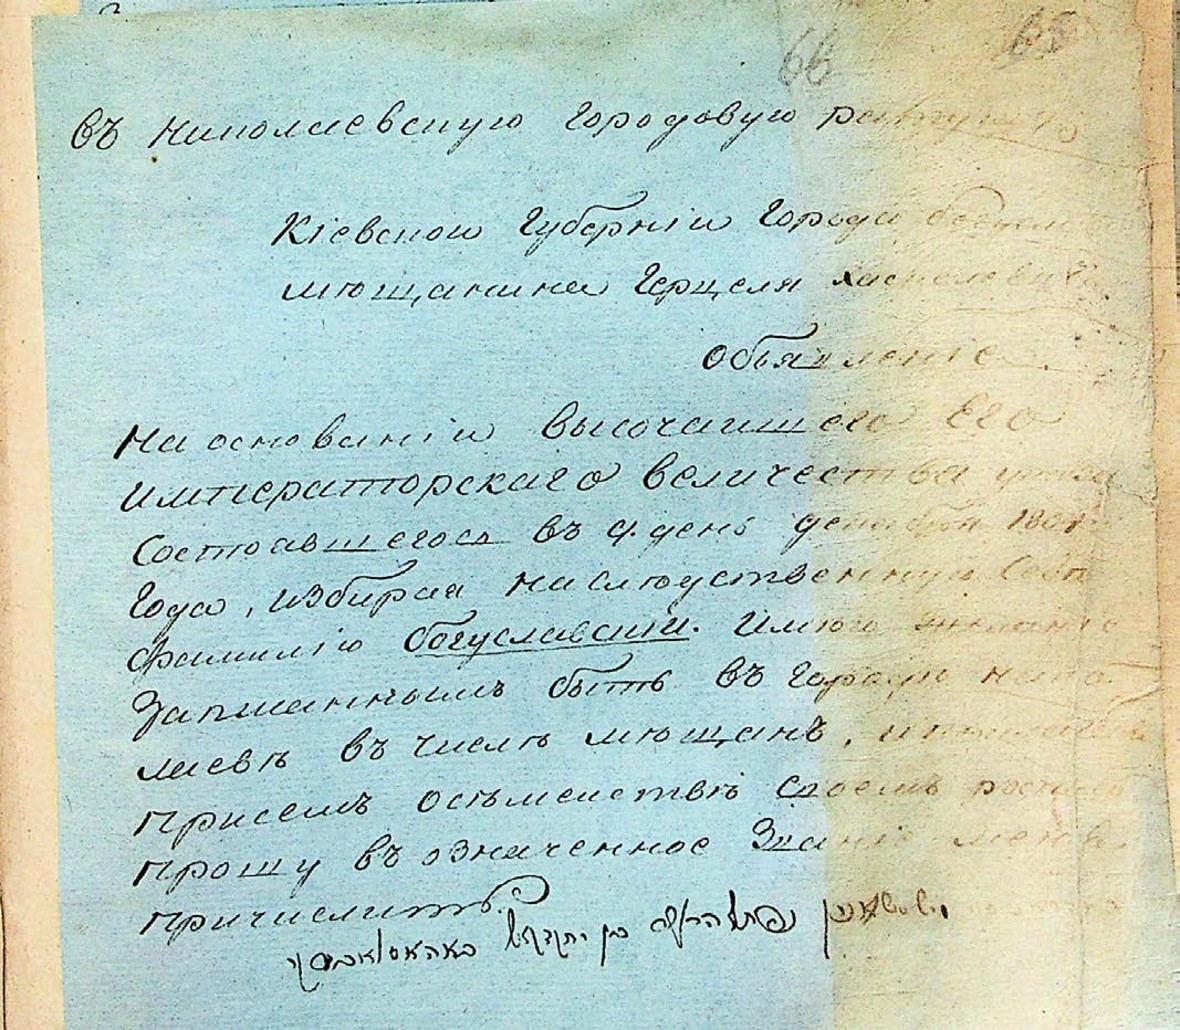 66 65
въ николаевскую городовую ратушу
Кіевской Губерніи Города
мѣщанина Герцеля
Объявленіе
На основаніи высочайшего Его
императорскаго величества указа
Состоявшегося въ 9. день декабря 1804
Года, избирая наслѣдственную Себѣ
фамилію богуславскій. Имѣю желаніе
Записаннымъ быть въ городѣ нико
лаевѣ въ числѣ мѣщанъ,
присемъ осѣмействѣ своемъ
прошу въ означенное Званіе меня
причислить.
בן